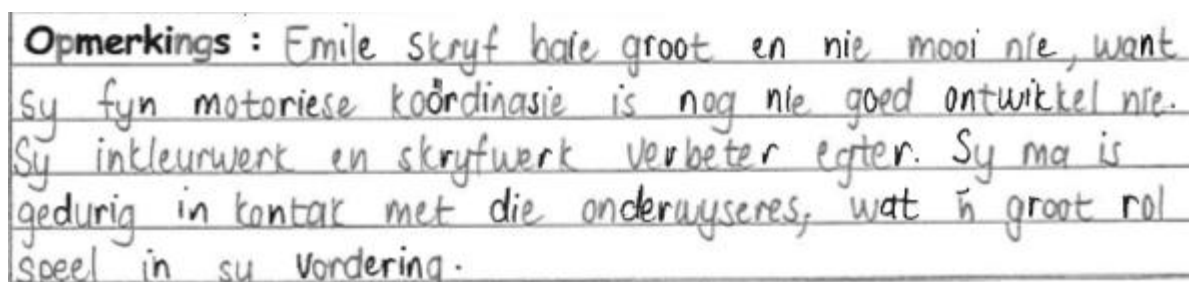 Opmerkings : Emile skryf baie groot en nie mooi nie, want
sy fyn motoriese koördinasie is nog nie goed ontwikkel nie.
Sy inkleurwerk en skryfwerk verbeter egter. Sy ma is
gedurig in kontak met die onderwyseres, wat 'n groot rol
speel in sy vordering.